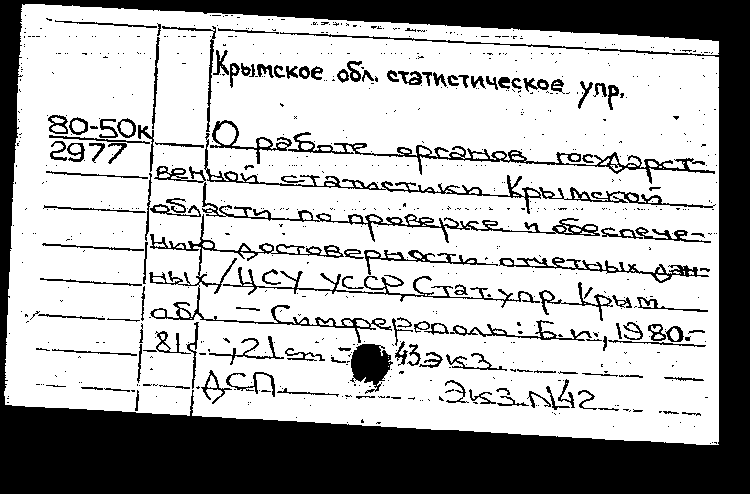 Крымское обл. статистическое упр.
80-50к
2977
О работе органов государст-
венной статистики Крымской
области по проверке и обеспече-
нию достоверности отчетных дан-
ных/ЦСУ УССР, Стат. упр. Крым.
обл. — Симферополь: Б.и., 1980.-
81с.; 21 cm - 43 экз.
ДСП. Экз. N42